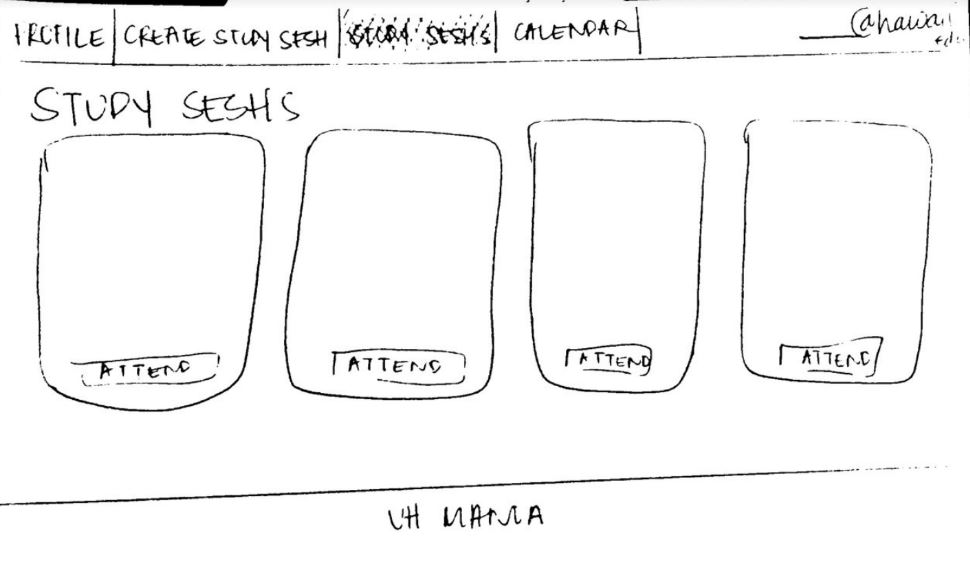 PROFILE CREATE STUDY SESH STUDY SESHS CALENDAR ____@hawaii.edu
STUDY SESHS
ATTEND ATTEND ATTEND ATTEND
UH MANOA